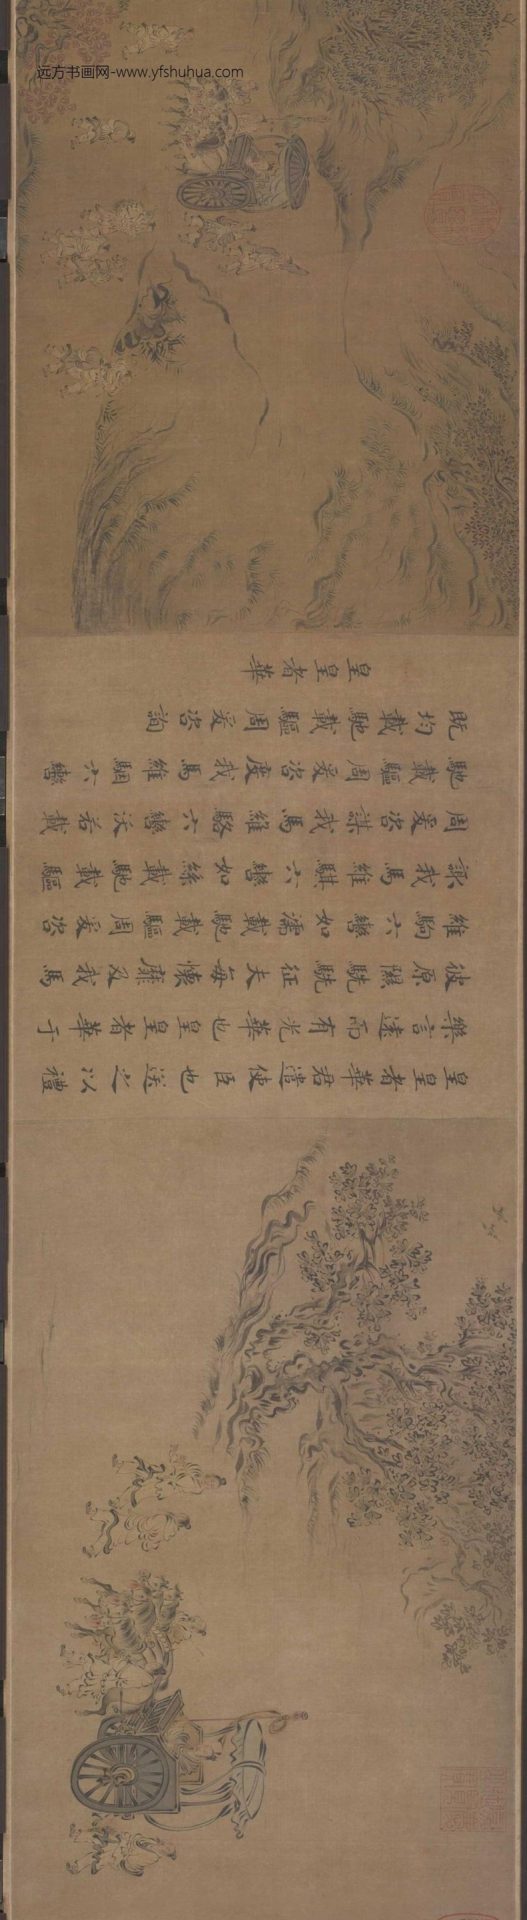 远方书画网-www.yfshuhua.com
皇皇者華君遣使臣也送之以禮
樂言遠而有光華也皇皇者華于
彼原隰駪駪征夫每懷靡及我馬
維駒六轡如濡載馳載驅周爰咨
諏我馬維騏六轡如絲載馳載驅
周爰咨謀我馬維駱六轡沃若載
馳載驅周爰咨度我馬維駰六轡
既均載馳載驅周爰咨詢
皇皇者華